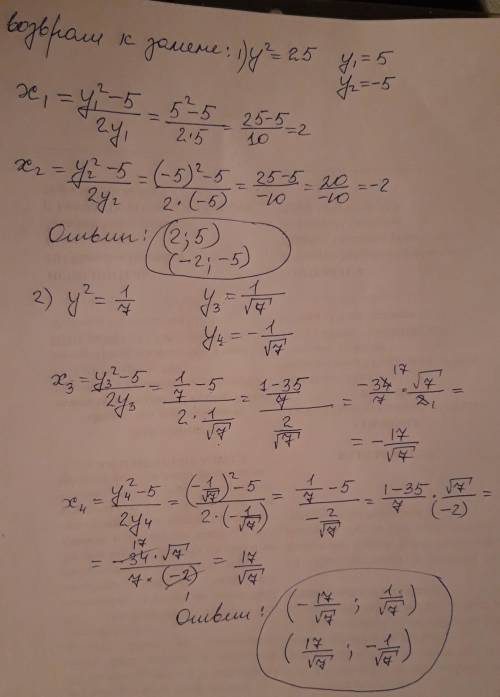 возврат к замене: 1) y² = 25 y₁ = 5
y₂ = -5
x₁ = (y₁² - 5)/(2y₁) = (5² - 5)/(2·5) = (25-5)/10 = 2
x₂ = (y₂² - 5)/(2y₂) = ((-5)² - 5)/(2·(-5)) = (25-5)/(-10) = 20/(-10) = -2
Ответ: (2; 5)
(-2; -5)
2) y² = 1/7 y₃ = 1/√7
y₄ = -1/√7
x₃ = (y₃² - 5)/(2y₃) = (1/7 - 5)/(2·1/√7) = ((1-35)/7)/(2/√7) = -34/7 · √7/2 =
17 1
= -17/√7
x₄ = (y₄² - 5)/(2y₄) = ((-1/√7)² - 5)/(2·(-1/√7)) = (1/7 - 5)/(-2/√7) = (1-35)/7 · √7/(-2) =
17
= (-34·√7)/(7·(-2)) = 17/√7
1
Ответ: (-17/√7 ; 1/√7)
(17/√7 ; -1/√7)